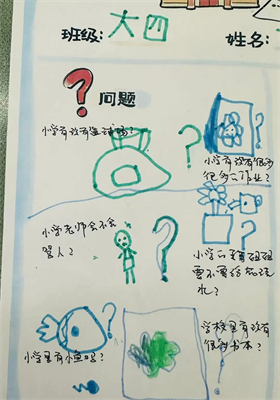 班级: 大四
姓名:
问题
小学有没有
小学有没有很多
很多的作业?
小学老师会不会
骂人?
小学的
要不要给花浇
水?
小学里有小鱼吗?
学校里有没有
很多书本?